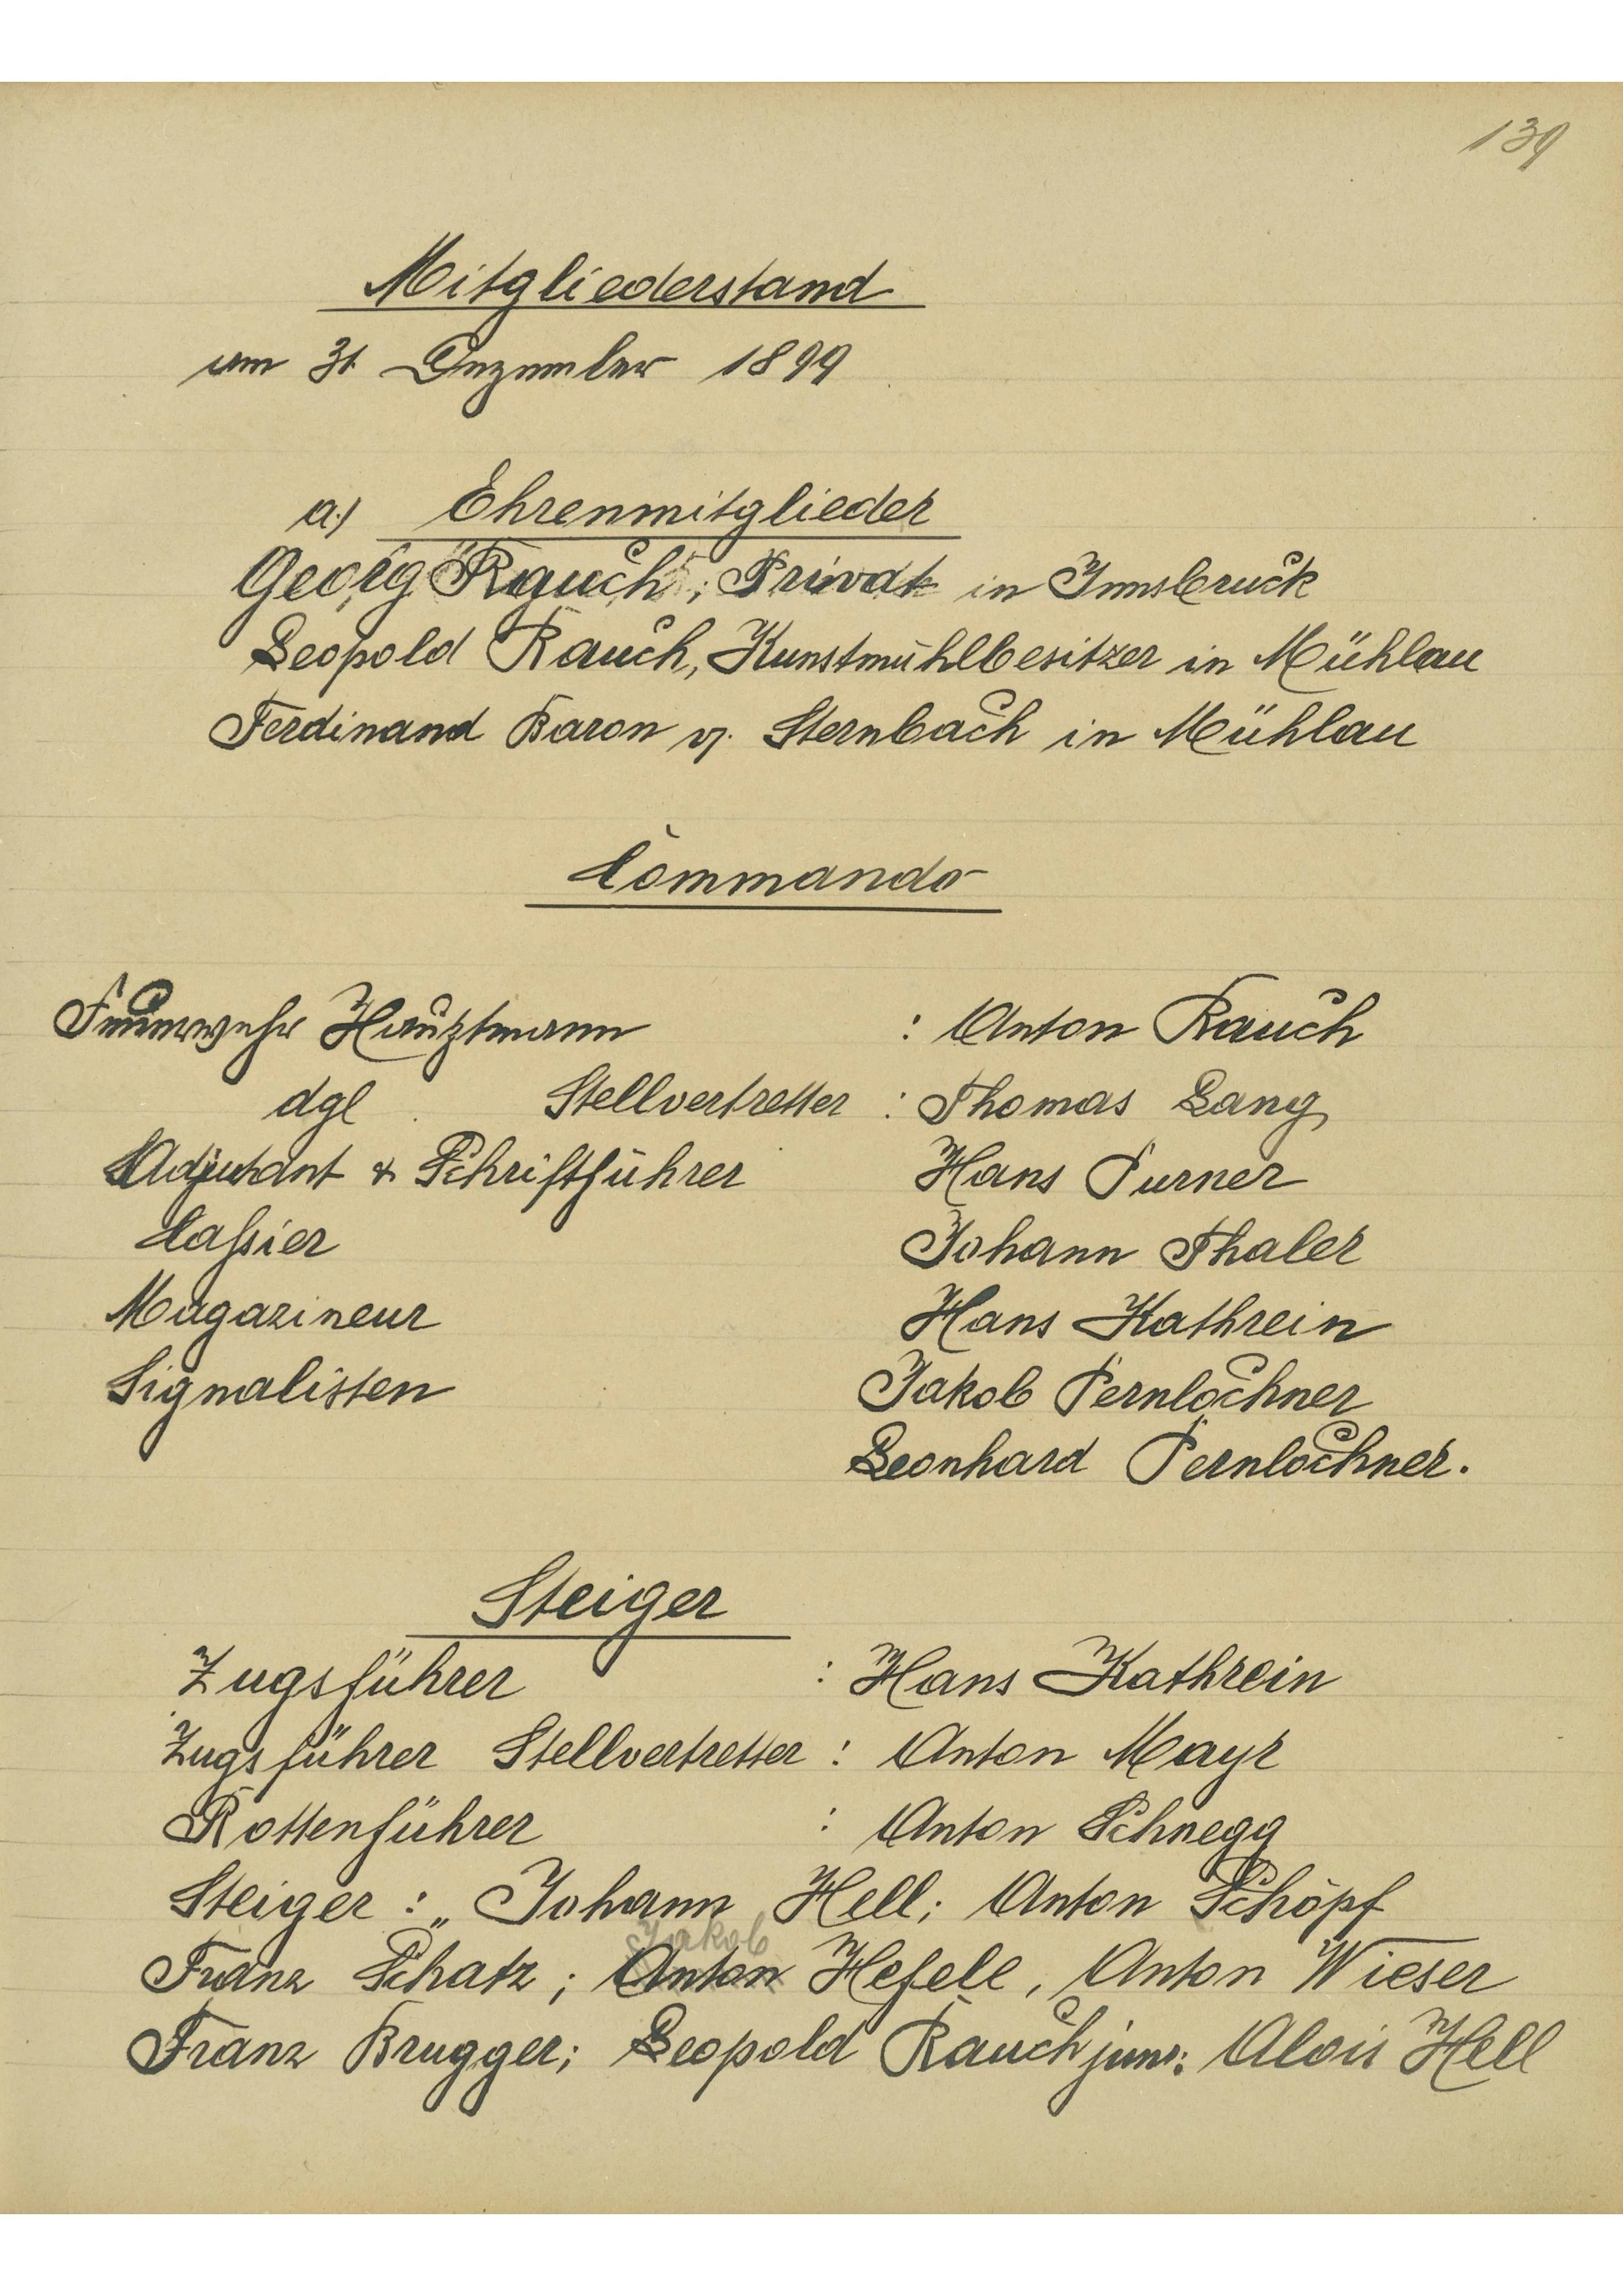 139
Mitgliederstand
am 31 Dezember 1899
a.) Ehrenmitglieder
Georg Rauch, Privat in Innsbruck
Leopold Rauch, Kunstmühlbesitzer in Mühlau
Ferdinand Baron v. Sternbach in Mühlau
Commando
Feuerwehr Hauptmann : Anton Rauch
dgl Stellvertretter : Thomas Lang
Adjutant & Schriftführer Hans Purner
Caßier Johann Thaler
Magazineur Hans Kathrein
Signalisten Jakob Pernlochner
Leonhard Pernlochner.
Steiger
Zugsführer : Hans Kathrein
Zugsführer Stellvertretter : Anton Mayr
Rottenführer : Anton Schnegg
Steiger : „ Johann Hell; Anton Schöpf
Jakob
Franz Schatz; Anton Hefele, Anton Wieser
Franz Brugger; Leopold Rauch jun.; Alois Hell